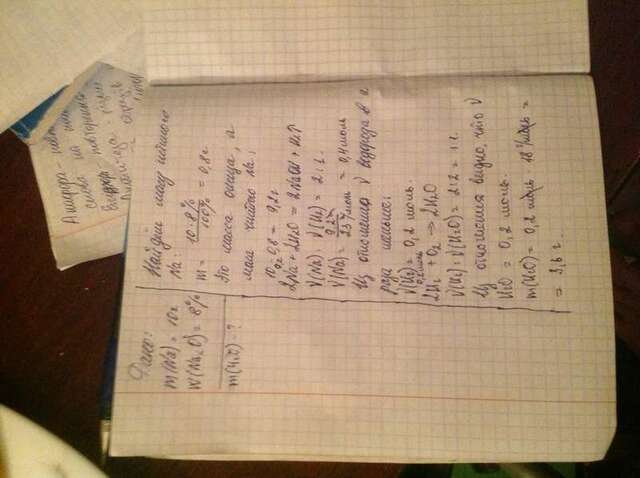 Дано:
m(Na) = 10г
W(Na₂O) = 8%
m(H₂O) - ?
Найдём массу чистого
Na:
m = 10·8% / 100% = 0,8г.
Это масса оксида, а
масса чистого Na:
10 - 0,8 = 9,2г
2Na + 2H₂O = 2NaOH + H₂↑
ν(Na) : ν(H₂) = 2:1.
ν(Na) = 9,2г / 23г/моль = 0,4 моль
Из отношения ν водорода в 2
раза меньше:
ν(H₂) = 0,2 моль.
0,2 моль
2H₂ + O₂ → 2H₂O
ν(H₂) : ν(H₂O) = 2:2 = 1:1.
Из отношения видно, что ν
H₂O = 0,2 моль.
m(H₂O) = 0,2 моль · 18 г/моль =
= 3,6 г.
Анафора -
слова